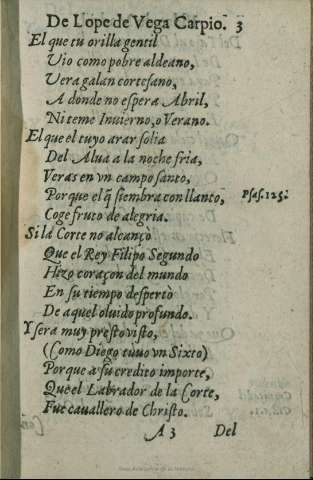 De Lope de Vega Carpio. 3
El que tu orilla gentil
Uio como pobre aldeano,
Uera galan cortesano,
A donde no espera Abril,
Ni teme Inuierno, o Verano.
El que el tuyo arar solia
Del Alua a la noche fria,
Veras en vn campo santo,
Porque el q̃ siembra con llanto, Psal. 125.
Coge fruto de alegria.
Si la Corte no alcançò
Que el Rey Filipo Segundo
Hizo coraçon del mundo
En su tiempo despertò
De aquel oluido profundo.
Y sera muy presto visto,
(Como Diego tuuo vn Sixto)
Porque a su credito importe,
Que el Labrador de la Corte,
Fue cauallero de Christo.
A 3 Del